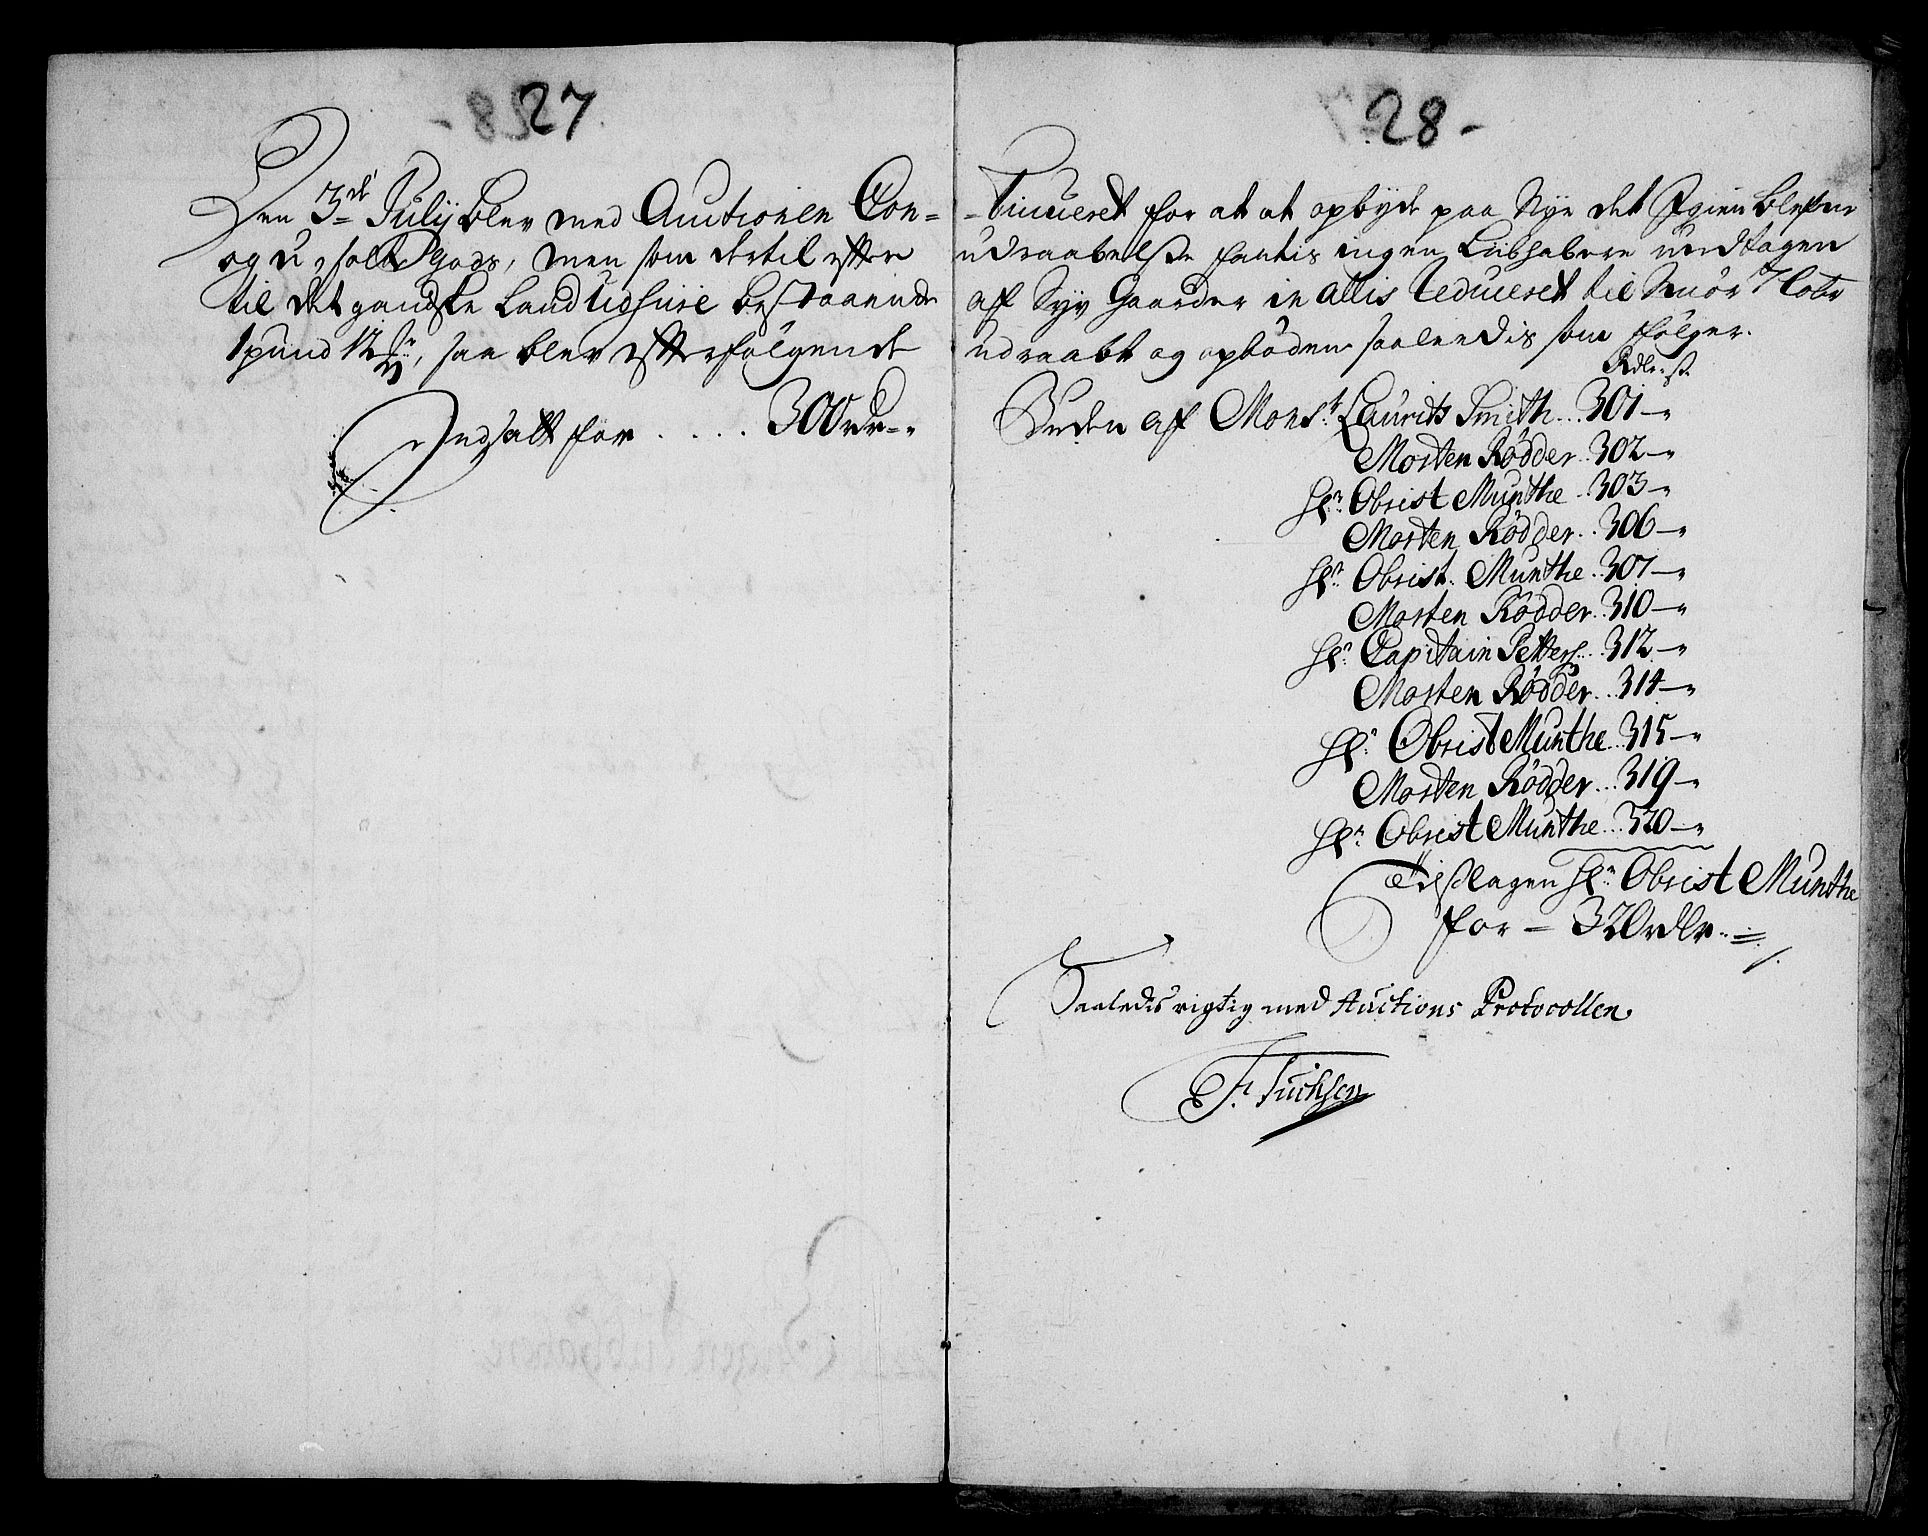 27
Den 3de Julij blev med Auctionen Con=
og u, solte Gods, men som dertil efter
til det gandske Land bestaaende
1 pund 12, saa blev effterfølgende
Indsatt for .... 300 rdr
28
=tinueret for at at opbyde paa Nye det Igien blefvne
udraabelse fantis ingen Liebhabere undtagen
af Syv Gaarder in allis reduceret til Smör
udraabt og opböden saaleedis som fölger.
Rdlr. s.
Buden af Monsr. Laurits Smith... 301 -"
Morten Rödder.. 302 -"
Hr. Obrist Munthe.. 303 -"
Morten Rödder.. 306 -"
Hr. Obrist. Munthe.. 307 -"
Morten Rödder.. 310 -"
Hr. Capitain Petters... 312 -"
Morten Rödder.. 314 -"
Hr. Obrist Munthe.. 315 -"
Morten Rödder... 319 -"
Hr. Obrist Munthe... 320 -"
Tilslagen Hr. Obrist Munthe
for = 320 rdlr.
Saaledis rigtig med Auctions Protocollen.
F. Tuchsen